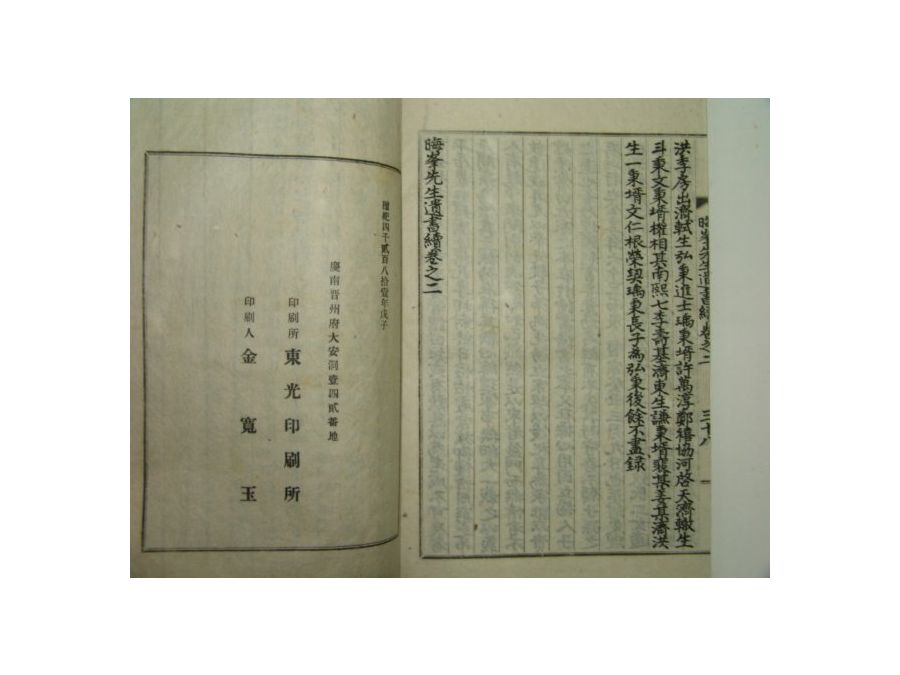 晦峯先生遺書續卷之二
三十八
洪李房出濟軾生弘東進士瑀東壻許萬淳鄭禧協河啓天濟轍生
斗東文東壻權相其南熙七李壽基濟東生謙東壻裵某姜某濟洪
生一東壻文仁根榮契瑀東長子為弘東後餘不盡録
晦峯先生遺書續卷之二
檀紀四千貳百八拾壹年戊子
慶南晋州府大安洞壹四貳番地
印刷所 東光印刷所
印刷人 金寬玉